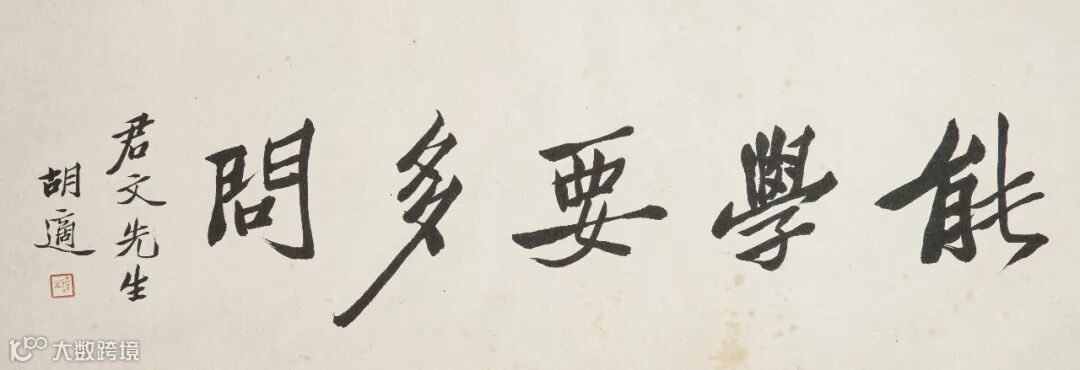 能學要多問
君文先生
胡適
大数跨境